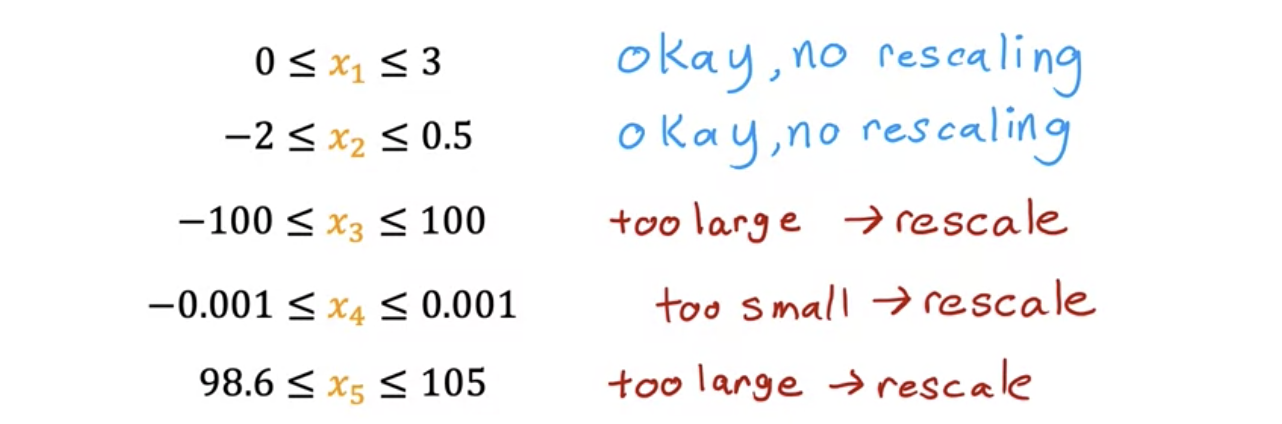 0 ≤ x₁ ≤ 3 okay, no rescaling
−2 ≤ x₂ ≤ 0.5 okay, no rescaling
−100 ≤ x₃ ≤ 100 too large → rescale
−0.001 ≤ x₄ ≤ 0.001 too small → rescale
98.6 ≤ x₅ ≤ 105 too large → rescale